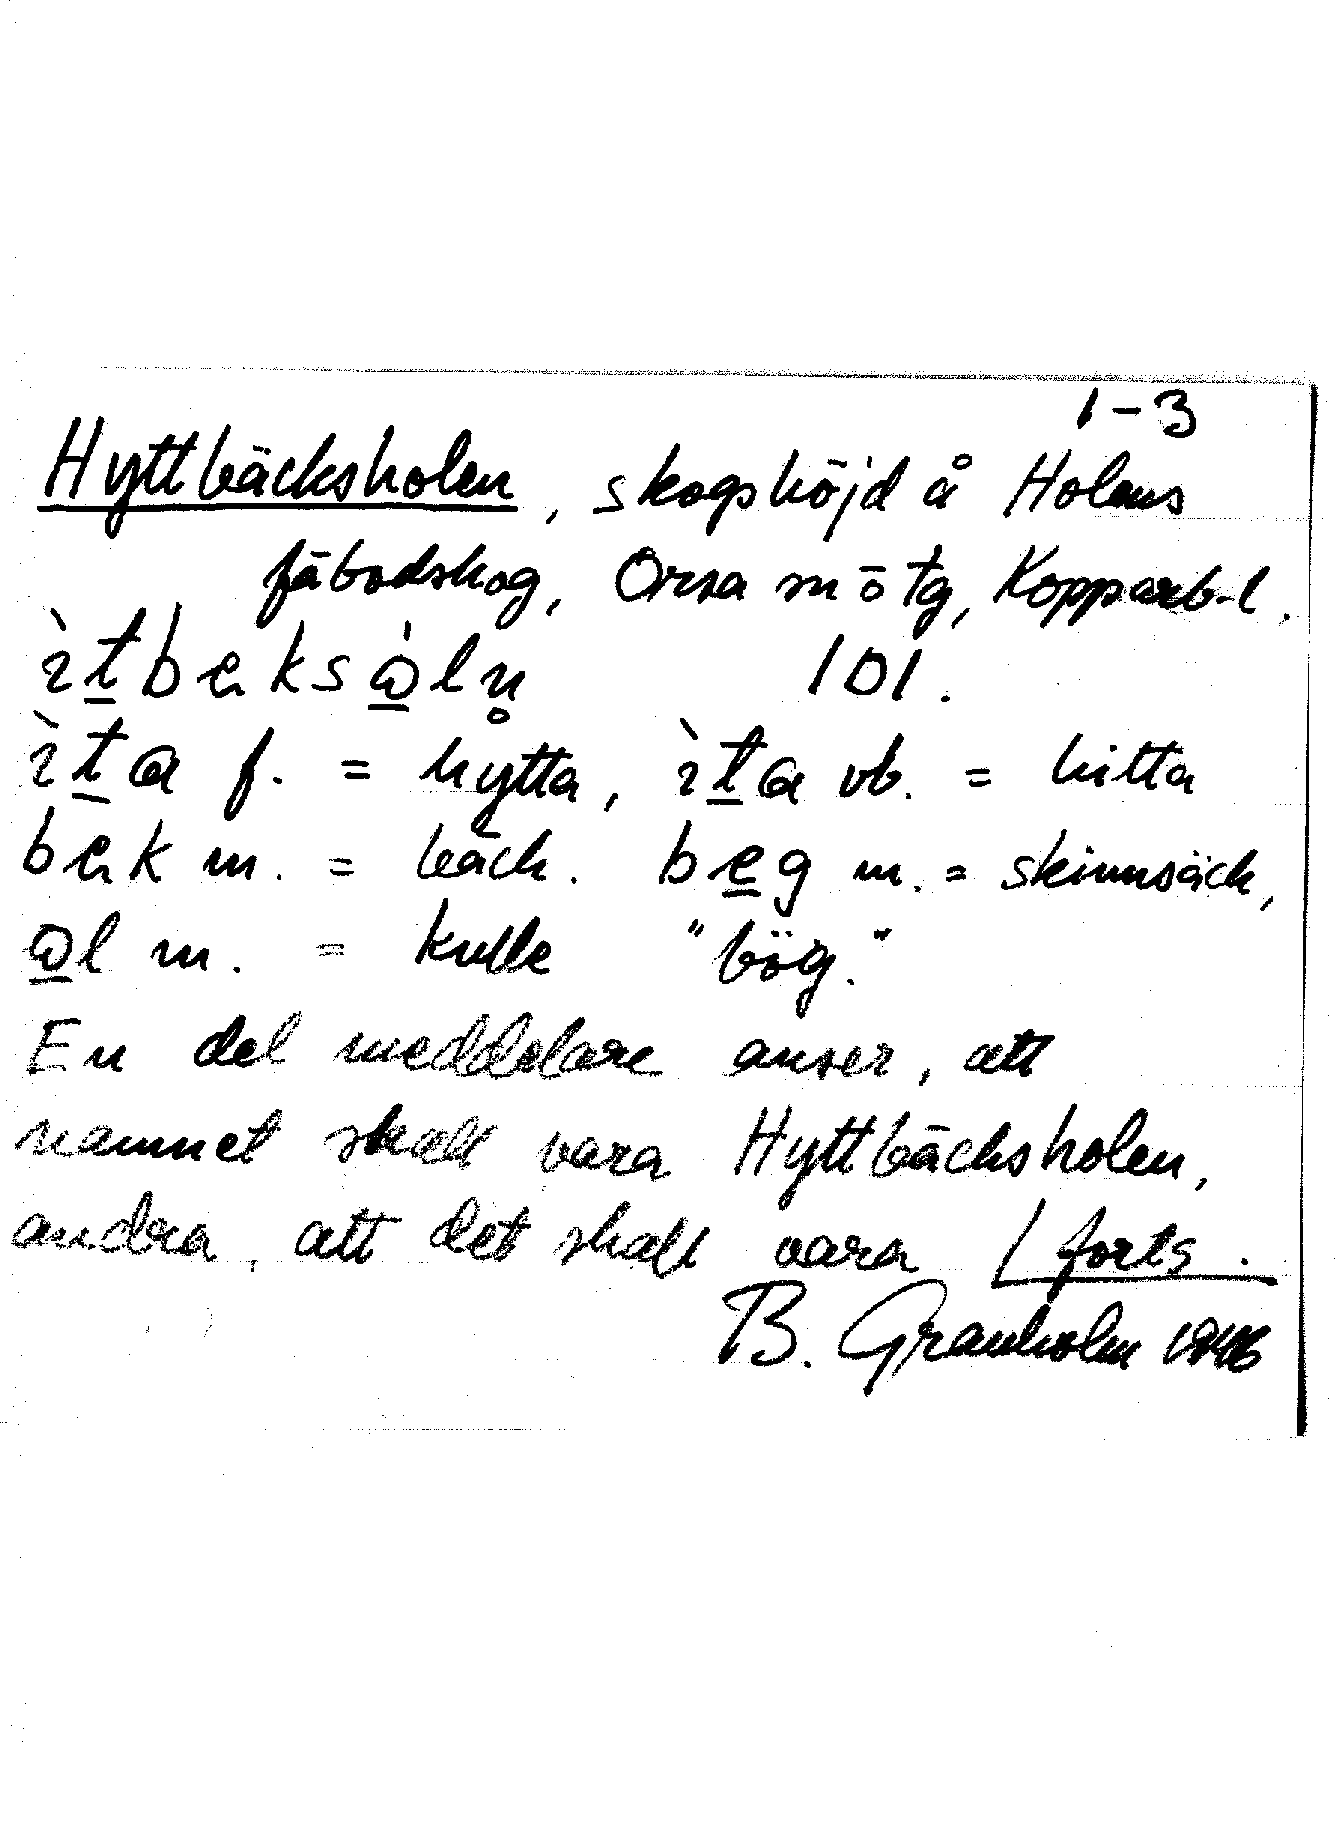 1-3
Hyttbäcksholen, skogshöjd å Holens
fäbodskog, Orsa m ō tg, Kopparb-l.
ìt̲beksɷ̲̀ln̥ 101.
ìt̲a f. = hytta, ìt̲a vb. = hitta
bek m. = bäck. be̲g m. = skinnsäck,
ɷ̲l m. = kulle "bög."
En del meddelare anser, att
namnet skall vara Hyttbäcksholen,
andra, att det skall vara / forts.
B. Granholm 1946